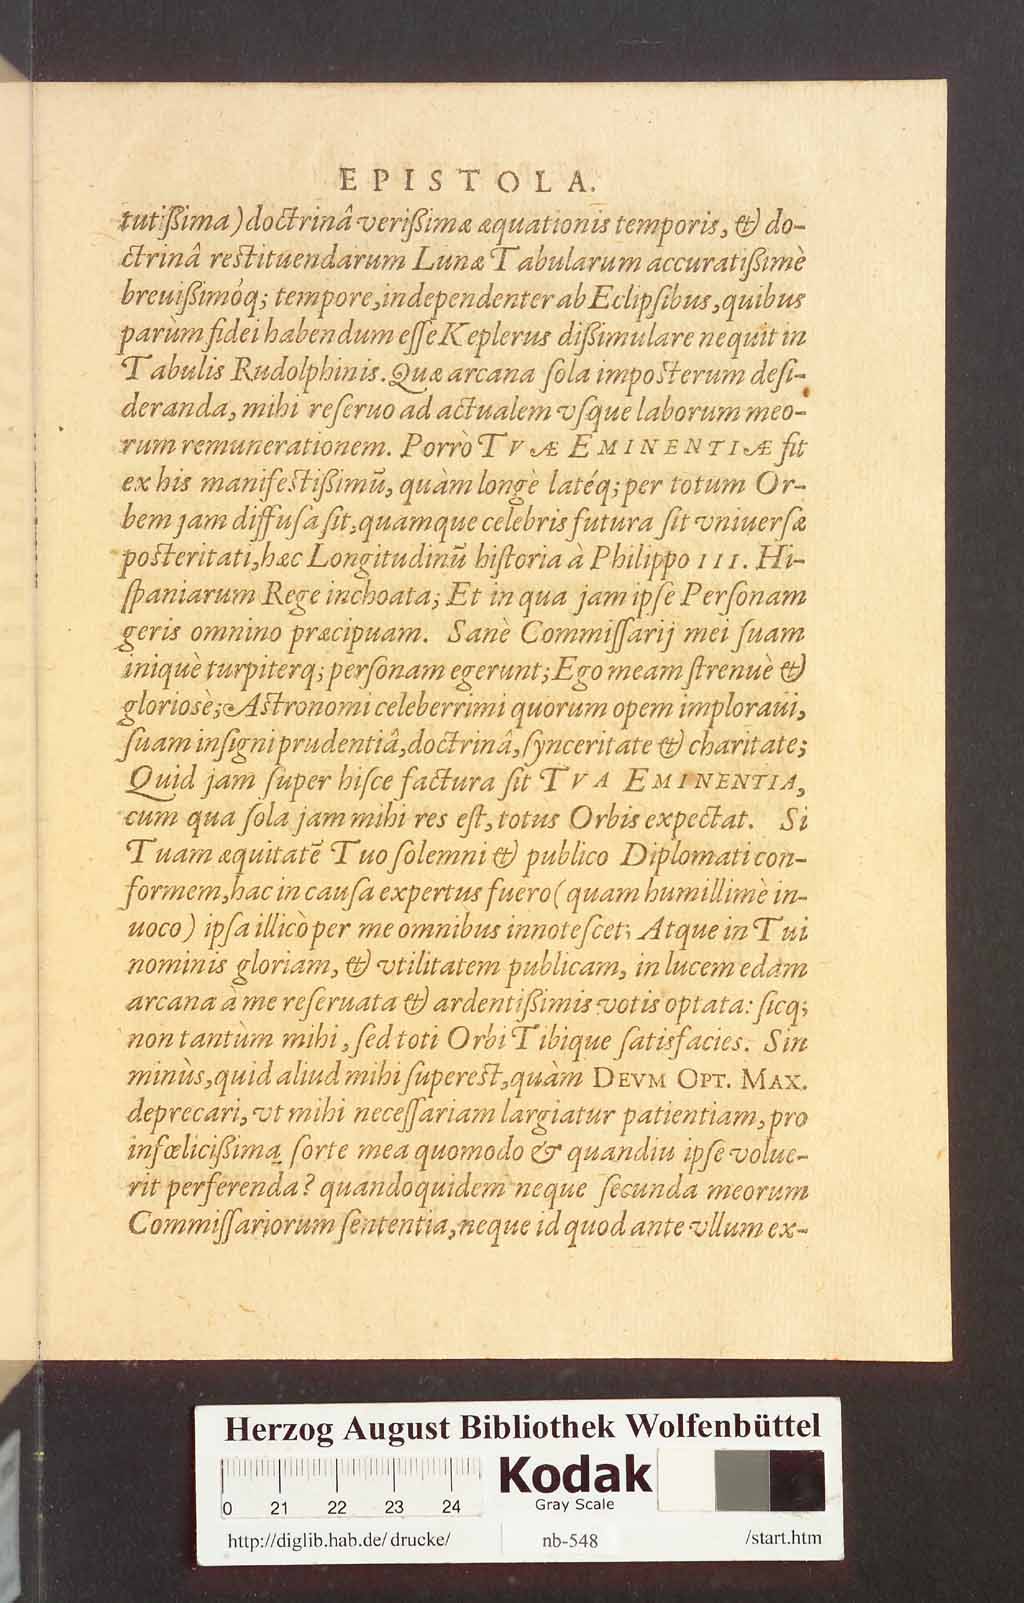 EPISTOLA.
tutißima) doctrinâ verißimæ æquationis temporis, & do-
ctrinâ restituendarum Lunæ Tabularum accuratißimè
breuißimóq; tempore, independenter ab Eclipſibus, quibus
parùm fidei habendum eſſe Keplerus dißimulare nequit in
Tabulis Rudolphinis. Quæ arcana ſola imposterum deſi-
deranda, mihi reſeruo ad actualem vſque laborum meo-
rum remunerationem. Porrò TVÆ EMINENTIÆ fit
ex his manifestißimũ, quàm longè latéq; per totum Or-
bem jam diffuſa ſit, quamque celebris futura ſit vniuerſæ
posteritati, hæc Longitudinũ hiſtoria à Philippo III. Hi-
ſpaniarum Rege inchoata; Et in qua jam ipſe Perſonam
geris omnino præcipuam. Sanè Commiſſarij mei ſuam
iniquè turpiterq; perſonam egerunt; Ego meam ſtrenuè &
gloriosè; Astronomi celeberrimi quorum opem imploraui,
ſuam inſigni prudentiâ, doctrinâ, ſynceritate & charitate;
Quid jam ſuper hiſce factura ſit TVA EMINENTIA,
cum qua ſola jam mihi res eſt, totus Orbis expectat. Si
Tuam æquitatẽ Tuo ſolemni & publico Diplomati con-
formem, hac in cauſa expertus fuero (quam humillimè in-
uoco) ipſa illicò per me omnibus innoteſcet; Atque in Tui
nominis gloriam, & vtilitatem publicam, in lucem edam
arcana à me reſeruata & ardentißimis votis optata: ſicq;
non tantùm mihi, ſed toti Orbi Tibique ſatisfacies. Sin
minùs, quid aliud mihi ſuperest, quàm DEVM OPT. MAX.
deprecari, vt mihi neceſſariam largiatur patientiam, pro
infœlicißima ſorte mea quomodo & quandiu ipſe volue-
rit perferenda? quandoquidem neque ſecunda meorum
Commiſſariorum ſententia, neque id quod ante vllum ex-
Herzog August Bibliothek Wolfenbüttel
0 21 22 23 24
Kodak
Gray Scale
http://diglib.hab.de/drucke/ nb-548 /start.htm